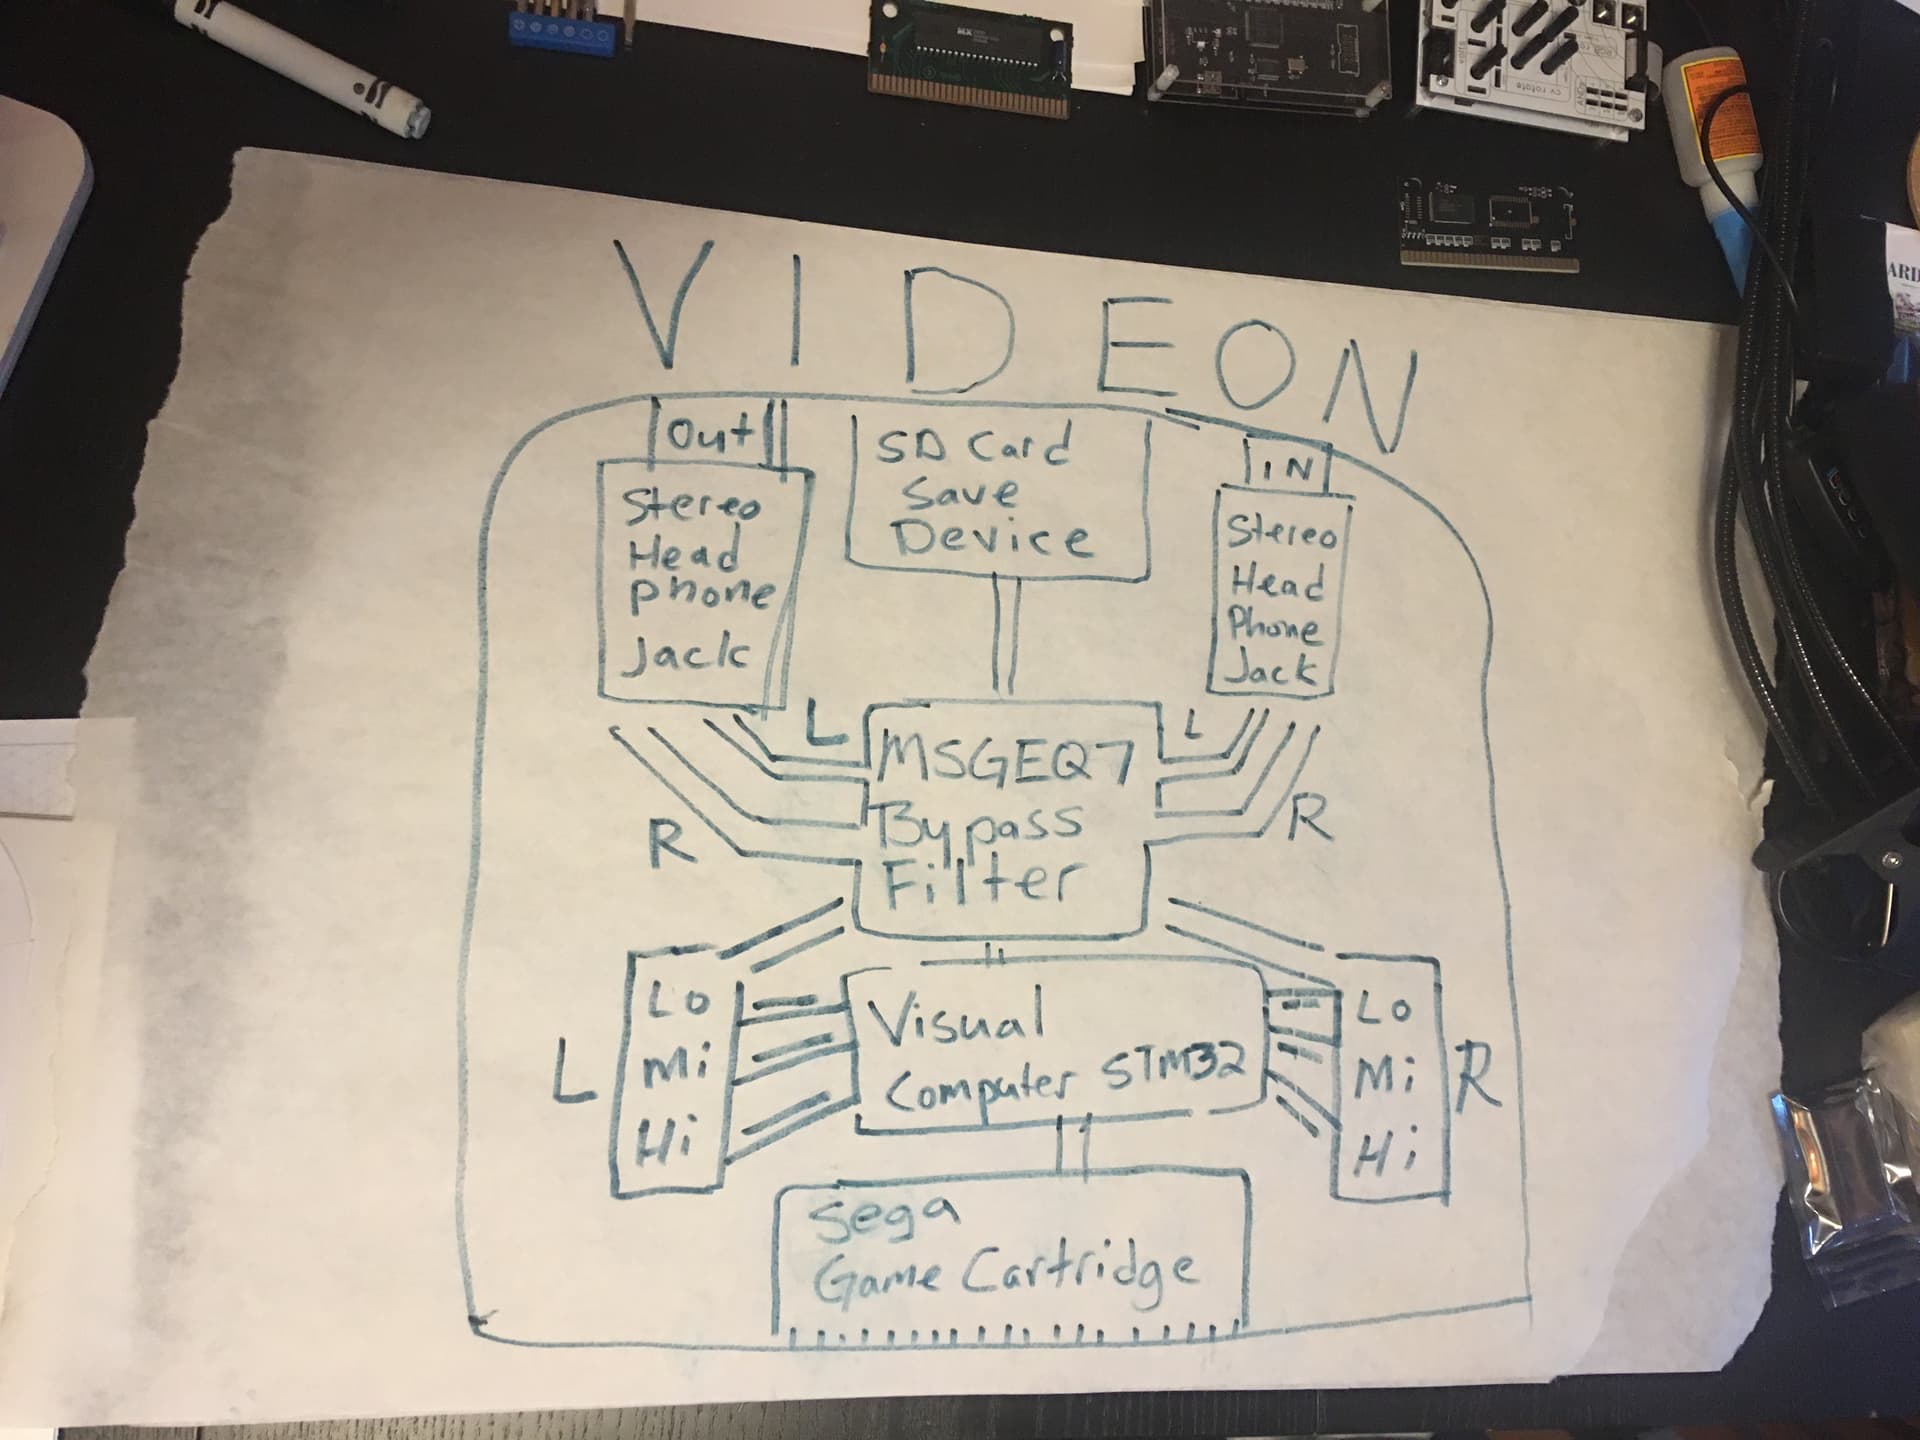 VIDEON
Out
SD Card
Save
Device
IN
Stereo
Head
phone
Jack
Stereo
Head
Phone
Jack
L
MSGEQ7
Bypass
Filter
L
R
R
L
Lo
Mi
Hi
Visual
Computer STM32
Lo
Mi
Hi
R
Sega
Game Cartridge
MX
cv rotate
ARD